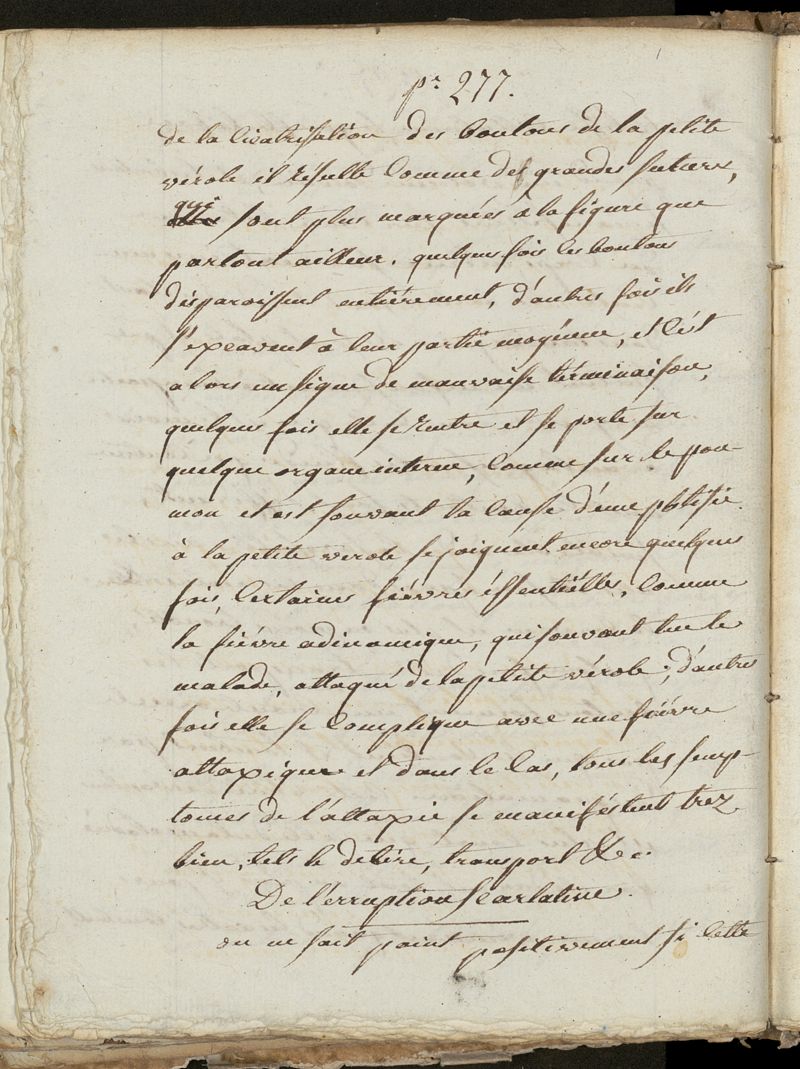 pr 277.
de la Cicatrisation des boutons de la petite
vérole il résulte Comme des grandes sutures,
qui sont plus marquées à la figure que
partout ailleur. quelques fois les boutons
disparoissent entiérement, d'autres fois ils
s'exeavent à leur partie moyénne, et C'est
alors un signe de mauvaise términaison,
quelques fois elle se rentre et se porte sur
quelque organe interne, Comme sur le pou-
mon et est souvant la Cause d'une phtisie.
à la petite verole se joignent encore quelques
fois, Certaines fiévres éssentiélles, Comme
la fiévre adinamique, qui souvant tue le
malade, attaqué de la petite vérole; d'autres
fois elle se Complique avec une fiévre
attaxique et dans le Cas, tous les simp-
tomes de l'attaxie se manifestent trez
bien, tels le delire, transport &c.
De l'érruption Scarlatine.
on ne sait point positivement si Cette